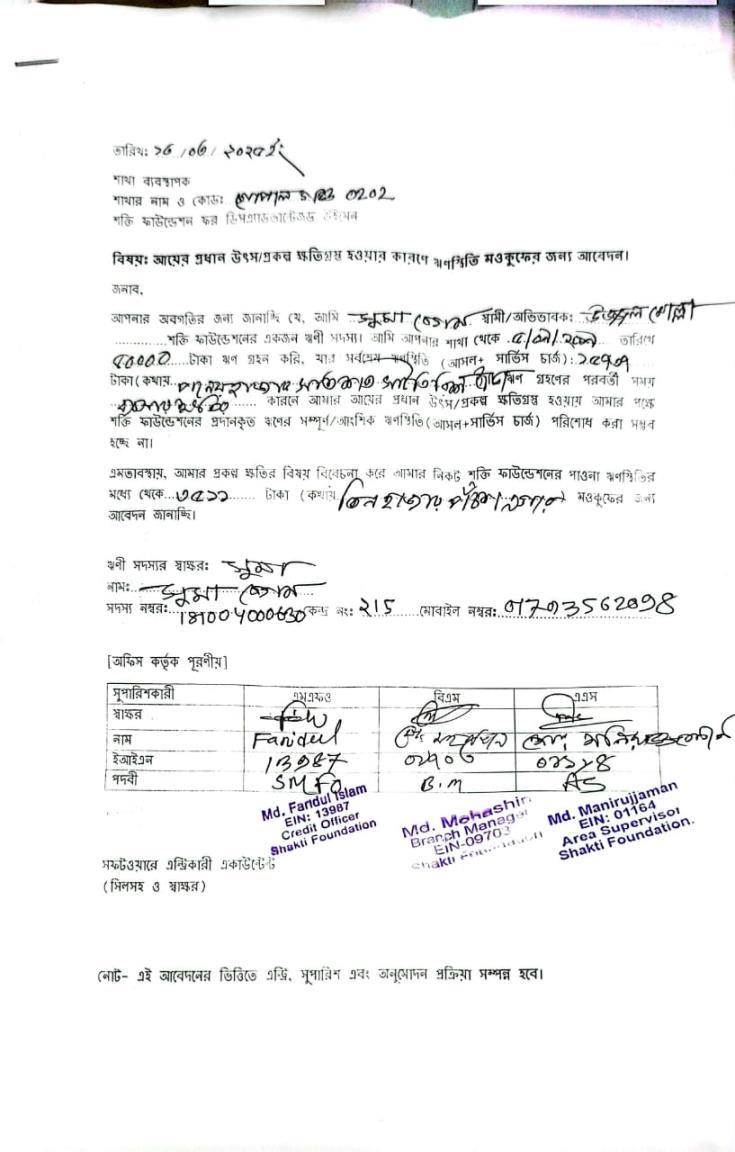 তারিখ: ১৬/০৬/২০২৫ইং
শাখা ব্যবস্থাপক
শাখার নাম ও কোডঃ গোপালগঞ্জ 0202
শক্তি ফাউন্ডেশন ফর ডিসএ্যাডভান্টেজড উইমেন
বিষয়: আয়ের প্রধান উৎস/প্রকল্প ক্ষতিগ্রস্ত হওয়ার কারণে ঋণস্থিতি মওকুফের জন্য আবেদন।
জনাব,
আপনার অবগতির জন্য জানাচ্ছি যে, আমি সুমা বেগম স্বামী/অভিভাবক: মোল্লা
শক্তি ফাউন্ডেশনের একজন ঋণী সদস্য। আমি আপনার শাখা থেকে তারিখে
৫০০০০ টাকা ঋণ গ্রহন করি, যার সর্বশেষ ঋণস্থিতি (আসল+ সার্ভিস চার্জ):
টাকা (কথায় ঋণ গ্রহণের পরবর্তী সময়
কারনে আমার আয়ের প্রধান উৎস/প্রকল্প ক্ষতিগ্রস্ত হওয়ায় আমার পক্ষে
শক্তি ফাউন্ডেশনের প্রদানকৃত ঋণের সম্পূর্ণ/আংশিক ঋণস্থিতি (আসল+সার্ভিস চার্জ) পরিশোধ করা সম্ভব
হচ্ছে না।
এমতাবস্থায়, আমার প্রকল্প ক্ষতির বিষয় বিবেচনা করে আমার নিকট শক্তি ফাউন্ডেশনের পাওনা ঋণস্থিতির
মধ্যে থেকে টাকা (কথায় তিন হাজার মওকুফের জন্য
আবেদন জানাচ্ছি।
ঋণী সদস্যর স্বাক্ষর: সুমা
নাম: সুমা বেগম
সদস্য নম্বর: কেন্দ্র নং: 215 মোবাইল নম্বর:
[অফিস কর্তৃক পূরণীয়]
সুপারিশকারী এমএফও বিএম এএস
স্বাক্ষর
নাম Faridul মোঃ মহাশিন মোঃ
ইআইএন 13987
পদবী SMFO B.M AS
Md. Faridul Islam
EIN: 13987
Credit Officer
Shakti Foundation
Md. Mohashin
Branch Manager
EIN-09703
Shakti Foundation
Md. Manirujjaman
EIN: 01164
Area Supervisor
Shakti Foundation.
সফটওয়ারে এন্ট্রিকারী একাউন্টেন্ট
(সিলসহ ও স্বাক্ষর)
নোট- এই আবেদনের ভিত্তিতে এন্ট্রি, সুপারিশ এবং অনুমোদন প্রক্রিয়া সম্পন্ন হবে।